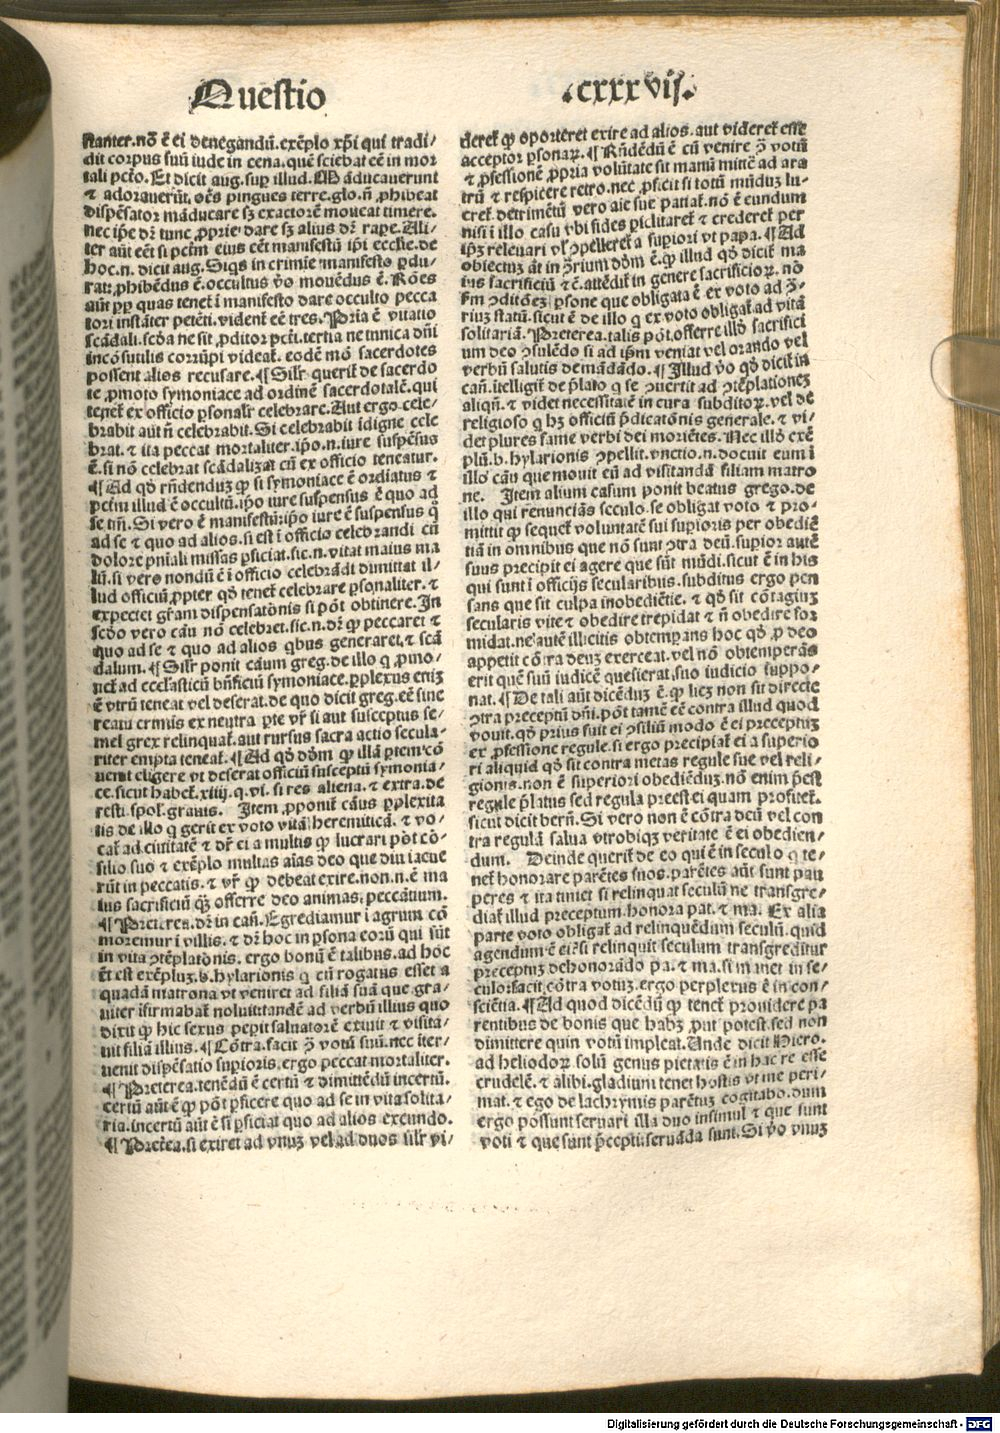 Questio
.cxxxvij.
stanter.nō ē ei denegandū.exēplo xp̄i qui tradi/
dit corpus suū iude in cena.quē sciebat eē in mor
tali pctō. Et dicit aug. sup illud. Māducauerunt
⁊ adorauerūt.oēs pingues terre.glo.n̄ ꝓhibeat
dispēsator māducare sꝫ exactorē moueat timere.
nec ip̄e dr̄ tunc ꝓprie dare sꝫ alius dr̄ rape. Ali/
ter aūt eēt si pctm̄ eius eēt manifestū ip̄i ecclīe.de
hoc.n. dicit aug. Siqs in crimīe manifesto ꝑdu/
rat:ꝓhibēdus ē.occultus v̄o mouēdus ē. Rōes
aūt ꝓp quas tenet̄ ī manifesto dare occulto pecca
tori instāter petēti.vident̄ eē tres. Pria ē vitatio
scādali.scd̓a ne sit ꝓditor pctī.tertia ne tunica dn̄i
incōsutilis corrūpi videat̄.eodē mō sacerdotes
possent alios recusare. ¶ Silr̄ querit̄ de sacerdo
te ꝓmoto symoniace ad ordinē sacerdotalē.qui
tenet̄ ex officio ꝑsonalr̄ celebrare. Aut ergo cele/
brabit aut n̄ celebrabit. Si celebrabit īdigne cele
brat.⁊ ita peccat mortaliter.ip̄o.n.iure suspēsus
ē.si nō celebrat scādalizat cū ex officio teneatur.
¶ Ad qd̓ rn̄dendūꝫ ꝙ si symoniace ē ordīatus ⁊
pctm̄ illud ē occultū.ip̄o iure suspensus ē quo ad
se tm̄. Si vero ē manifestū:ip̄o iure ē suspensus q̄
ad se ⁊ quo ad alios.si est ī officio celebrandi cū
dolore pn̄iali missas ꝑficiat.sic.n.vitat maius ma
lū.si vero nondū ē ī officio celebrādi dimittat il/
lud officiū ꝓpter qd̓ tenet̄ celebrare ꝑsonaliter.⁊
expectet gr̄am dispensatōnis si pōt obtinere. In
scd̓o vero cāu nō celebret.sic.n.dr̄ ꝙ peccaret ⁊
quo ad se ⁊ quo ad alios qbus generaret̄.⁊ scā
dalum. ¶ Silr̄ ponit cāum greg.de illo q ꝓmo/
uet̄ ad ecclesiasticū bn̄ficiū symoniace.ꝑplexus enīꝫ
ē vtrū teneat vel deserat.de quo dicit greg.eē sine
reatu crīmis ex neutra ꝑte vr̄ si aut susceptus se/
mel grex relinquat̄.aut rursus sacra actio secula/
riter empta teneat̄. ¶ Ad qd̓ dd̓m ꝙ illā ꝑtem cō
uenit eligere vt deserat officiū susceptū symonia/
ce.sicut habet̄.xiiij.q.vi.si res aliena.⁊ extra.de
resti.spol.grauis. Item ꝓponit̄ cāus ꝑplexita
tis de illo q gerit ex voto vitā heremiticā.⁊ vo/
cat̄ ad ciuitatē ⁊ dr̄ ei a multis ꝙ lucrari pōt cō/
silio suo ⁊ exēplo multas aīas deo que diu iacue
rūt in peccatis.⁊ vr̄ ꝙ debeat exire.non.n.ē ma
ius sacrificiū qꝫ offerre deo animas peccantium.
¶ Preterea.dr̄ in cān. Egrediamur ī agrum cō
moremur ī villis.⁊ dr̄ hoc in ꝑsona eorū qui sūt
in vita ꝯtēplatōnis.ergo bonū ē talibus.ad hoc
ēt est exēpluꝫ.b.hylarionis q cū rogatus esset a
quadā matrona vt veniret ad filiā suā que gra/
uiter īfirmabat̄ noluit:tandē ad verbū illius quo
dixit ꝙ hic sexus pepit saluatorē exiuit ⁊ visita/
uit filiā illius. ¶ Cōtra.facit ꝯ̄ votū suū.nec iter/
uenit dispēsatio supioris.ergo peccat mortaliter.
¶ Preterea.tenēdū ē certū ⁊ dimittēdū incertū.
certū aūt ē ꝙ pōt ꝑficere quo ad se in vita solita/
ria.incertū aūt ē si ꝑficiat quo ad alios exeundo.
¶ Preterea.si exiret ad vnuꝫ vel ad duos silr̄ vi/
deret̄ ꝙ oporteret exire ad alios.aut videret̄ esse
acceptor ꝑsonaꝝ. ¶ Rn̄dēdū ē cū venire ꝯ̄ votū
⁊ ꝓfessionē ꝓpria volūtate sit manū mittē ad ara
trū ⁊ respicere retro.nec ꝓficit si totū mūduꝫ lu/
cret̄.detrimētū vero aīe sue patiat̄.nō ē eundum
nisi ī illo casu vbi fides ꝑiclitaret̄ ⁊ crederet̄ per
ip̄ꝫ releuari vl̓ ꝯpelleret̄ a supiori vt papa. ¶ Ad
obiectuꝫ āt in ꝯ̄rium dd̓m ē.ꝙ illud qd̓ dicit̄ ma
ius sacrificiū ⁊c̄.attēdit̄ in genere sacrificioꝝ.nō
fm ꝯditōeꝫ ꝑsone que obligata ē ex voto ad ꝯ̄/
riuꝫ statū.sicut ē de illo q ex voto obligat̄ ad vitā
solitariā. Preterea.talis pōt.offerre illd̓ sacrifici
um deo ꝯsulēdo si ad ip̄m veniat vel orando vel
verbū salutis demādādo. ¶ Illud v̄o qd̓ dicit̄ in
cān.ītelligit̄ de p̄lato q se ꝯuertit ad ꝯtēplationeꝫ
aliqn̄.⁊ videt necessitatē in cura subditoꝝ.vel de
religioso q hꝫ officiū p̄dicatōnis generale.⁊ vi/
det plures fame verbi dei moriētes. Nec illd̓ exē
plū.b.hylarionis ꝯpellit.vnctio.n.docuit eum ī
illo cāu que mouit eū ad visitandā filiam matro
ne. Item alium casum ponit beatus grego.de
illo qui renuncians seculo.se obligat voto ⁊ pro/
mittit ꝙ sequet̄ voluntatē sui supioris per obediē
tiā in omnibus que nō sunt ꝯtra deū.supior autē
suus precipit ei agere que sūt mūdi.sicut ē in his
qui sunt ī officijs secularibus.subditus ergo pen
sans que sit culpa inobediētie.⁊ qd̓ sit cōtagiuꝫ
secularis vite ⁊ obedire trepidat ⁊ n̄ obedire for
midat.ne autē illicitis obtemꝑans hoc qd̓ ꝓ deo
appetit cōtra deuꝫ exerceat.vel nō obtemperās
erit quē suū iudicē quesierat.suo iudicio suppo/
nat. ¶ De tali aūt dicēduꝫ ē.ꝙ licꝫ non sit directe
ꝯtra preceptū dn̄i.pōt tamē eē contra illud quod
vouit.qd̓ prius fuit ei ꝯsiliū modo ē ei preceptuꝫ
ex ꝓfessione regule.si ergo precipiat̄ ei a superio
ri aliquid qd̓ sit contra metas regule sue vel reli/
gionis.non ē superiori obediēduꝫ.nō enim p̄est
regule p̄latus sed regula preest ei quam profitet̄.
sicut dicit bern̄. Si vero non ē cōtra deū vel con
tra regulā salua vtrobiqꝫ veritate ē ei obedien/
dum. Deinde querit̄ de eo qui ē in seculo q te/
net̄ honorare parētes suos.parētes aūt sunt pau
peres ⁊ ita timet si relinquat seculū ne transgre/
diat̄ illud preceptum.honora pat.⁊ ma. Ex alia
parte voto obligat̄ ad relinquēdum seculū.quid
agendum ē ei?si relinquit seculum transgreditur
preceptuꝫ dehonorādo pa.⁊ ma.si manet in se/
culo:facit cōtra votuꝫ.ergo perplexus ē in con/
sciētia. ¶ Ad quod dicēdū ꝙ tenet̄ prouidere pa
rentibus de bonis que habꝫ ꝓut potest.sed non
dimittere quin votū impleat. Unde dicit Hiero.
ad heliodoꝝ.solū genus pietatis ē in hac re esse
crudelē.⁊ alibi.gladium tenet hostis vt me peri/
mat.⁊ ego de lachrymis parētuꝫ cogitabo.dum
ergo possunt seruari illa duo insimul ⁊ que sunt
voti ⁊ que sunt p̄cepti:seruāda sunt. Si v̄o vnuꝫ
Digitalisierung gefördert durch die Deutsche Forschungsgemeinschaft - DFG